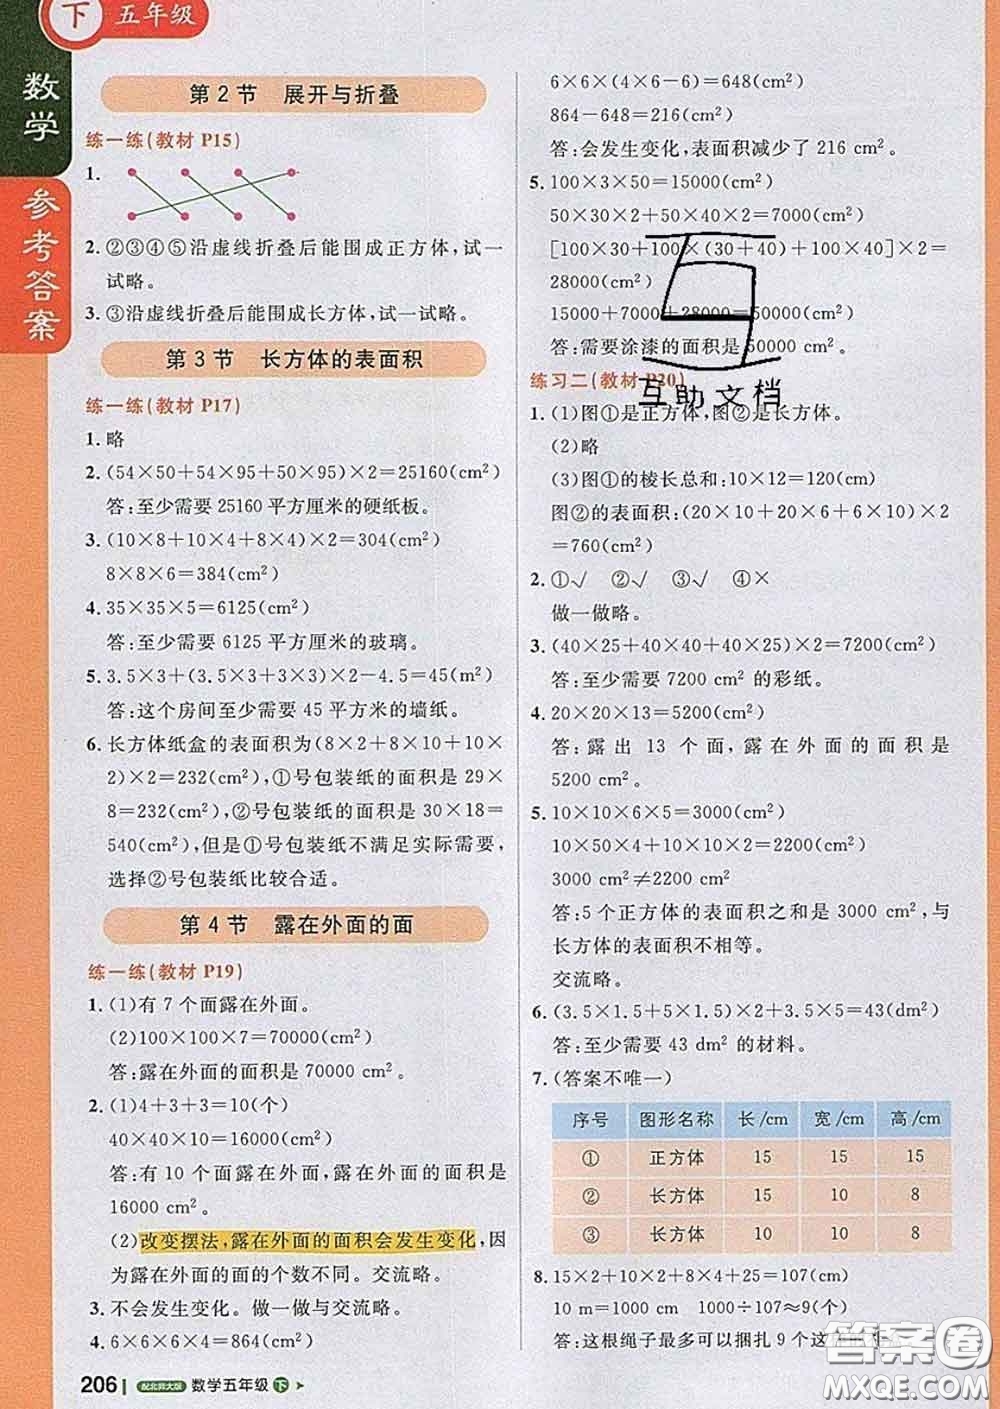 下 五年级
数学
参考答案
第2节 展开与折叠
练一练(教材 P15)
1.
2. ②③④⑤沿虚线折叠后能围成正方体,试一
试略。
3. ③沿虚线折叠后能围成长方体,试一试略。
第3节 长方体的表面积
练一练(教材 P17)
1. 略
2. (54×50+54×95+50×95)×2=25160(cm²)
答:至少需要 25160 平方厘米的硬纸板。
3. (10×8+10×4+8×4)×2=304(cm²)
8×8×6=384(cm²)
4. 35×35×5=6125(cm²)
答:至少需要 6125 平方厘米的玻璃。
5. 3.5×3+(3.5×3+3×3)×2-4.5=45(m²)
答:这个房间至少需要 45 平方米的墙纸。
6. 长方体纸盒的表面积为(8×2+8×10+10×
2)×2=232(cm²),①号包装纸的面积是 29×
8=232(cm²),②号包装纸的面积是 30×18=
540(cm²),但是①号包装纸不满足实际需要,
选择②号包装纸比较合适。
第4节 露在外面的面
练一练(教材 P19)
1. (1)有 7 个面露在外面。
(2)100×100×7=70000(cm²)
答:露在外面的面积是 70000 cm²。
2. (1)4+3+3=10(个)
40×40×10=16000(cm²)
答:有 10 个面露在外面,露在外面的面积是
16000 cm²。
(2)改变摆法,露在外面的面积会发生变化,因
为露在外面的面的个数不同。交流略。
3. 不会发生变化。做一做与交流略。
4. 6×6×6×4=864(cm²)
6×6×(4×6-6)=648(cm²)
864-648=216(cm²)
答:会发生变化,表面积减少了 216 cm²。
5. 100×3×50=15000(cm²)
50×30×2+50×40×2=7000(cm²)
[100×30+100×(30+40)+100×40]×2=
28000(cm²)
15000+7000+28000=50000(cm²)
答:需要涂漆的面积是 50000 cm²。
互助文档
练习二(教材 P20)
1. (1)图①是正方体,图②是长方体。
(2)略
(3)图①的棱长总和:10×12=120(cm)
图②的表面积:(20×10+20×6+10×6)×2
=760(cm²)
2. ①√ ②√ ③√ ④×
做一做略。
3. (40×25+40×40+40×25)×2=7200(cm²)
答:至少需要 7200 cm² 的彩纸。
4. 20×20×13=5200(cm²)
答:露出 13 个面,露在外面的面积是
5200 cm²。
5. 10×10×6×5=3000(cm²)
10×50×4+10×10×2=2200(cm²)
3000 cm²≠2200 cm²
答:5 个正方体的表面积之和是 3000 cm²,与
长方体的表面积不相等。
交流略。
6. (3.5×1.5+5×1.5)×2+3.5×5=43(dm²)
答:至少需要 43 dm² 的材料。
7. (答案不唯一)
序号 图形名称 长/cm 宽/cm 高/cm
① 正方体 15 15 15
② 长方体 15 10 8
③ 长方体 10 10 8
8. 15×2+10×2+8×4+25=107(cm)
10 m=1000 cm 1000÷107≈9(个)
答:这根绳子最多可以捆扎 9 个这
答案圈
MXQE.COM
206 配北师大版 数学五年级 下